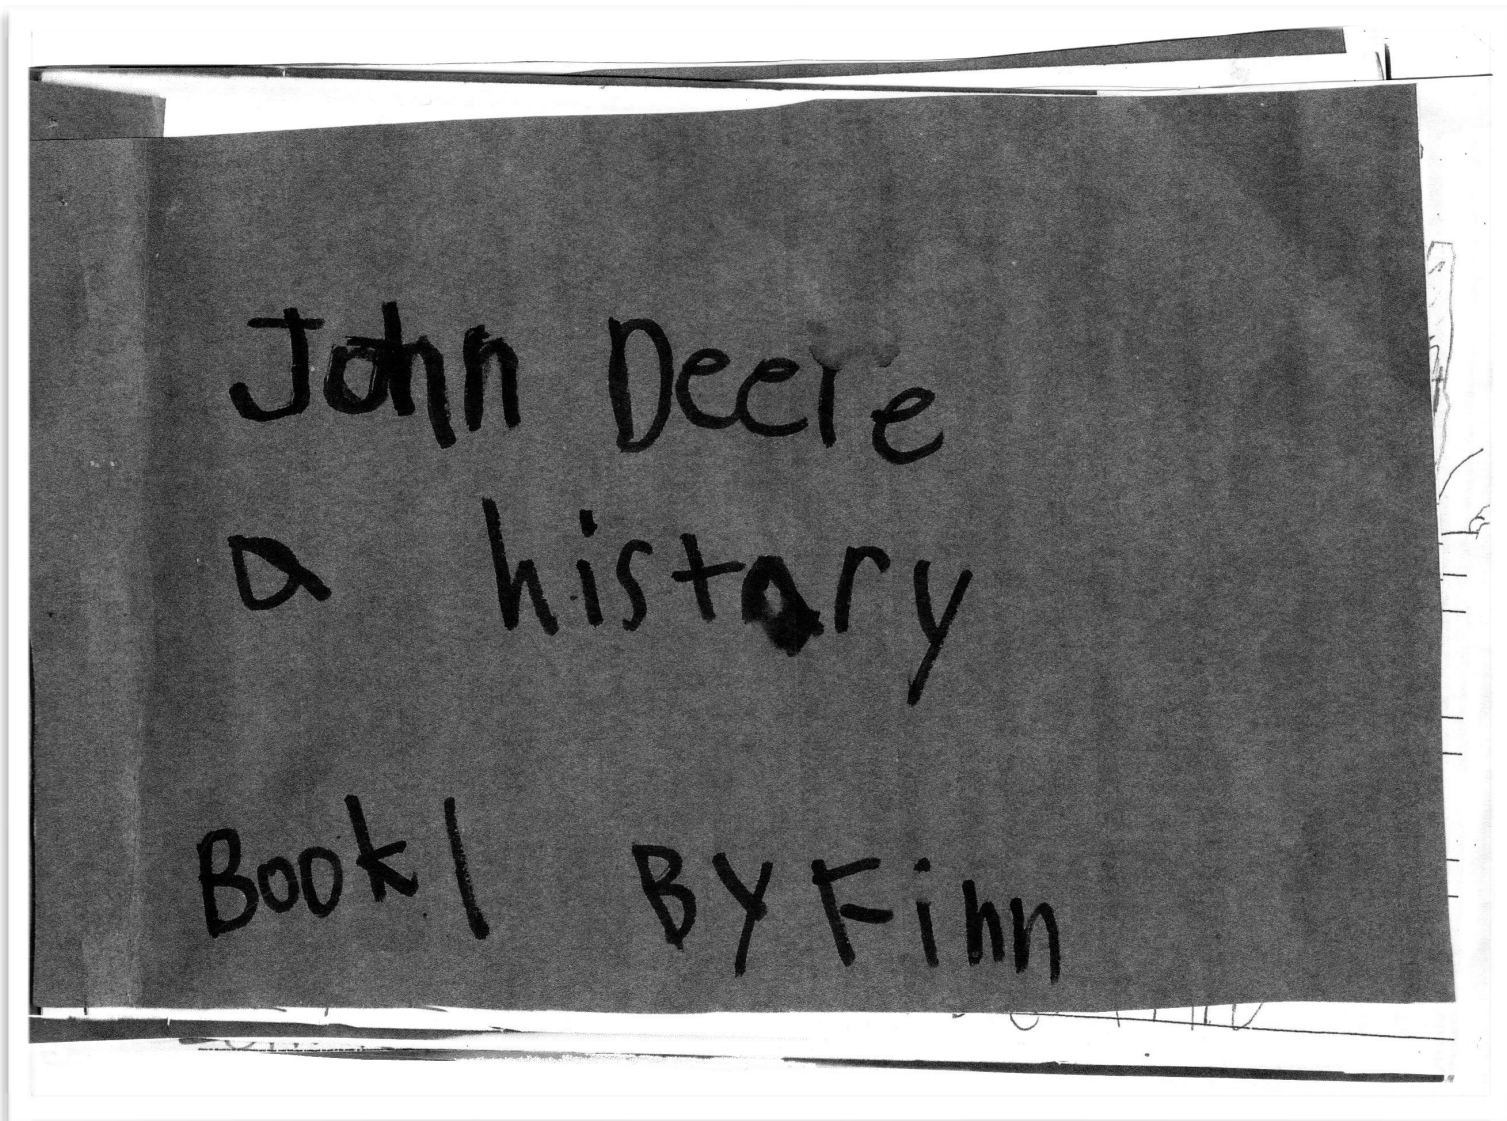 John Deere
a history
Book 1 By Finn